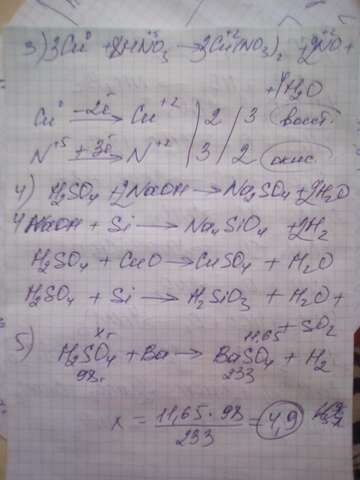 3) 3Cu⁰ + 8HN⁺⁵O₃ → 3Cu⁺²(NO₃)₂ + 2N⁺²O +
+ 4H₂O
Cu⁰ -2ē → Cu⁺² | 2 | 3 восст.
N⁺⁵ +3ē → N⁺² | 3 | 2 окис.
4) H₂SO₄ + 2NaOH → Na₂SO₄ + 2H₂O
4NaOH + Si → Na₄SiO₄ + 2H₂
H₂SO₄ + CuO → CuSO₄ + H₂O
H₂SO₄ + Si → H₂SiO₃ + H₂O +
+ SO₂
xг 11,65
5) H₂SO₄ + Ba → BaSO₄ + H₂
98г 233
x = 11,65 · 98 / 233 = 4,9